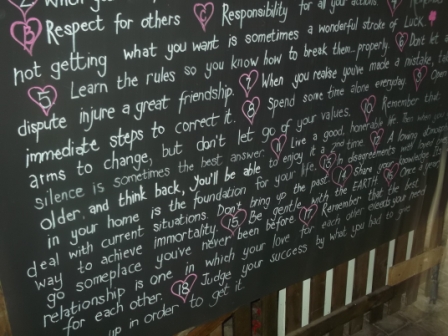 2 When you
3 Respect for others C Responsibility for all your actions
not getting what you want is sometimes a wonderful stroke of Luck
5 Learn the rules so you know how to break them properly. 6 Don't let a
dispute injure a great friendship. 7 When you realise you've made a mistake, take
immediate steps to correct it. 8 Spend some time alone everyday. 9
arms to change, but don't let go of your values. 10 Remember that
silence is sometimes the best answer. 11 Live a good, honorable life. Then when you
older and think back, You'll be able to enjoy it a 2nd time. 12 A loving atmosphere
in your home is the foundation for your life. 13 In disagreements with loved
deal with current situations. Don't bring up the past. 14 Share your knowledge
way to achieve immortality. 15 Be gentle with the EARTH. 16 Once a
go someplace you've never been before. 17 Remember that the best
relationship is one in which your love for each other exceeds your need
for each other. 18 Judge your success by what you had to give
up in order to get it.